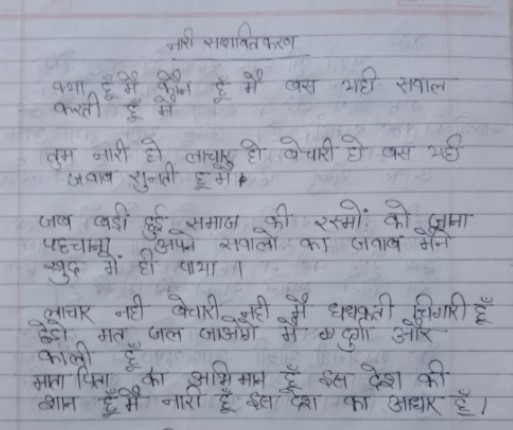 नारी सशक्तिकरण
क्या हूँ मैं कौन हूँ मैं बस यही सवाल
करती हूँ मैं
तुम नारी हो लाचार हो बेचारी हो बस यही
जवाब सुनती हूँ मैं।
जब बड़ी हुई समाज की रस्मों को जाना
पहचाना अपने सवालो का जवाब मैने
खुद में ही पाया ॥
लाचार नही बेचारी नही मैं धधकती चिंगारी हूँ
छेड़ो मत जल जाओगे मैं दुर्गा और
काली हूँ
माता पिता का अभिमान हूँ इस देश की
शान हूँ मैं नारी हूँ इस देश का आधार हूँ।